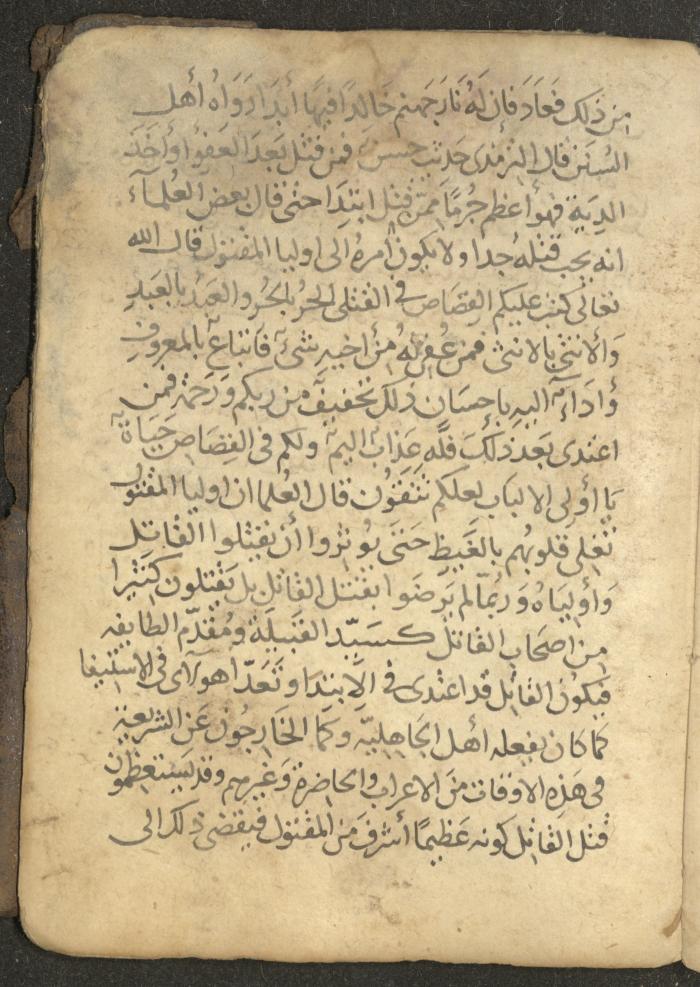 من ذلك فعاد فان له نار جهنم خالدا فيها أبدا رواه أهل
السنن قال الترمذى حديث حسن فمن قتل بعد العفو أو أخذ
الدية فهو أعظم جرما ممن قتل ابتدا حتى قال بعض العلماء
انه يجب قتله حدا ولا يكون أمره الى اوليا المقتول قال الله
تعالى كتب عليكم القصاص فى القتلى الحر بالحر والعبد بالعبد
والأنثى بالانثى فمن عفى له من أخيه شىء فاتباع بالمعروف
وأداء اليه بإحسان ذلك تخفيف من ربكم ورحمة فمن
اعتدى بعد ذلك فله عذاب اليم ولكم فى القصاص حياة
يا أولى الالباب لعلكم تتقون قال العلما ان اوليا المقتول
تغلى قلوبهم بالغيظ حتى يوثروا أن يقتلوا القاتل
وأولياه وربما لم يرضوا بقتل القاتل بل يقتلون كثيرا
من اصحاب القاتل كسيد القبيلة ومقدم الطايفه
فيكون القاتل قد اعتدى فى الابتدا وتعدا هو لاى فى الاستيفا
كما كان يفعله أهل الجاهليه وكما الخارجون عن الشريعة
فى هذه الاوقات من الاعراب والحاضرة وغيرهم وقد يستعظمون
قتل القاتل كونه عظيما أشرف من المقتول فيفضى ذلك الى